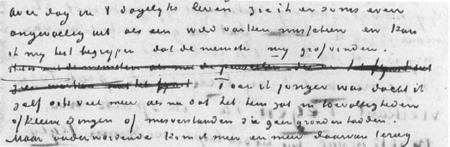 Over dag in 't dagelyks leven zie ik er soms even
ongevoelig uit als een wild varken misschien en kan
ik my best begrypen dat de menschen my grof vinden.
Toen ik jonger was dacht ik
zelf ook veel meer als nu dat het hem zat in toevalligheden
of kleine dingen of misverstanden die geen grond hadden.
Maar ouder wordende kom ik meer en meer daarvan terug